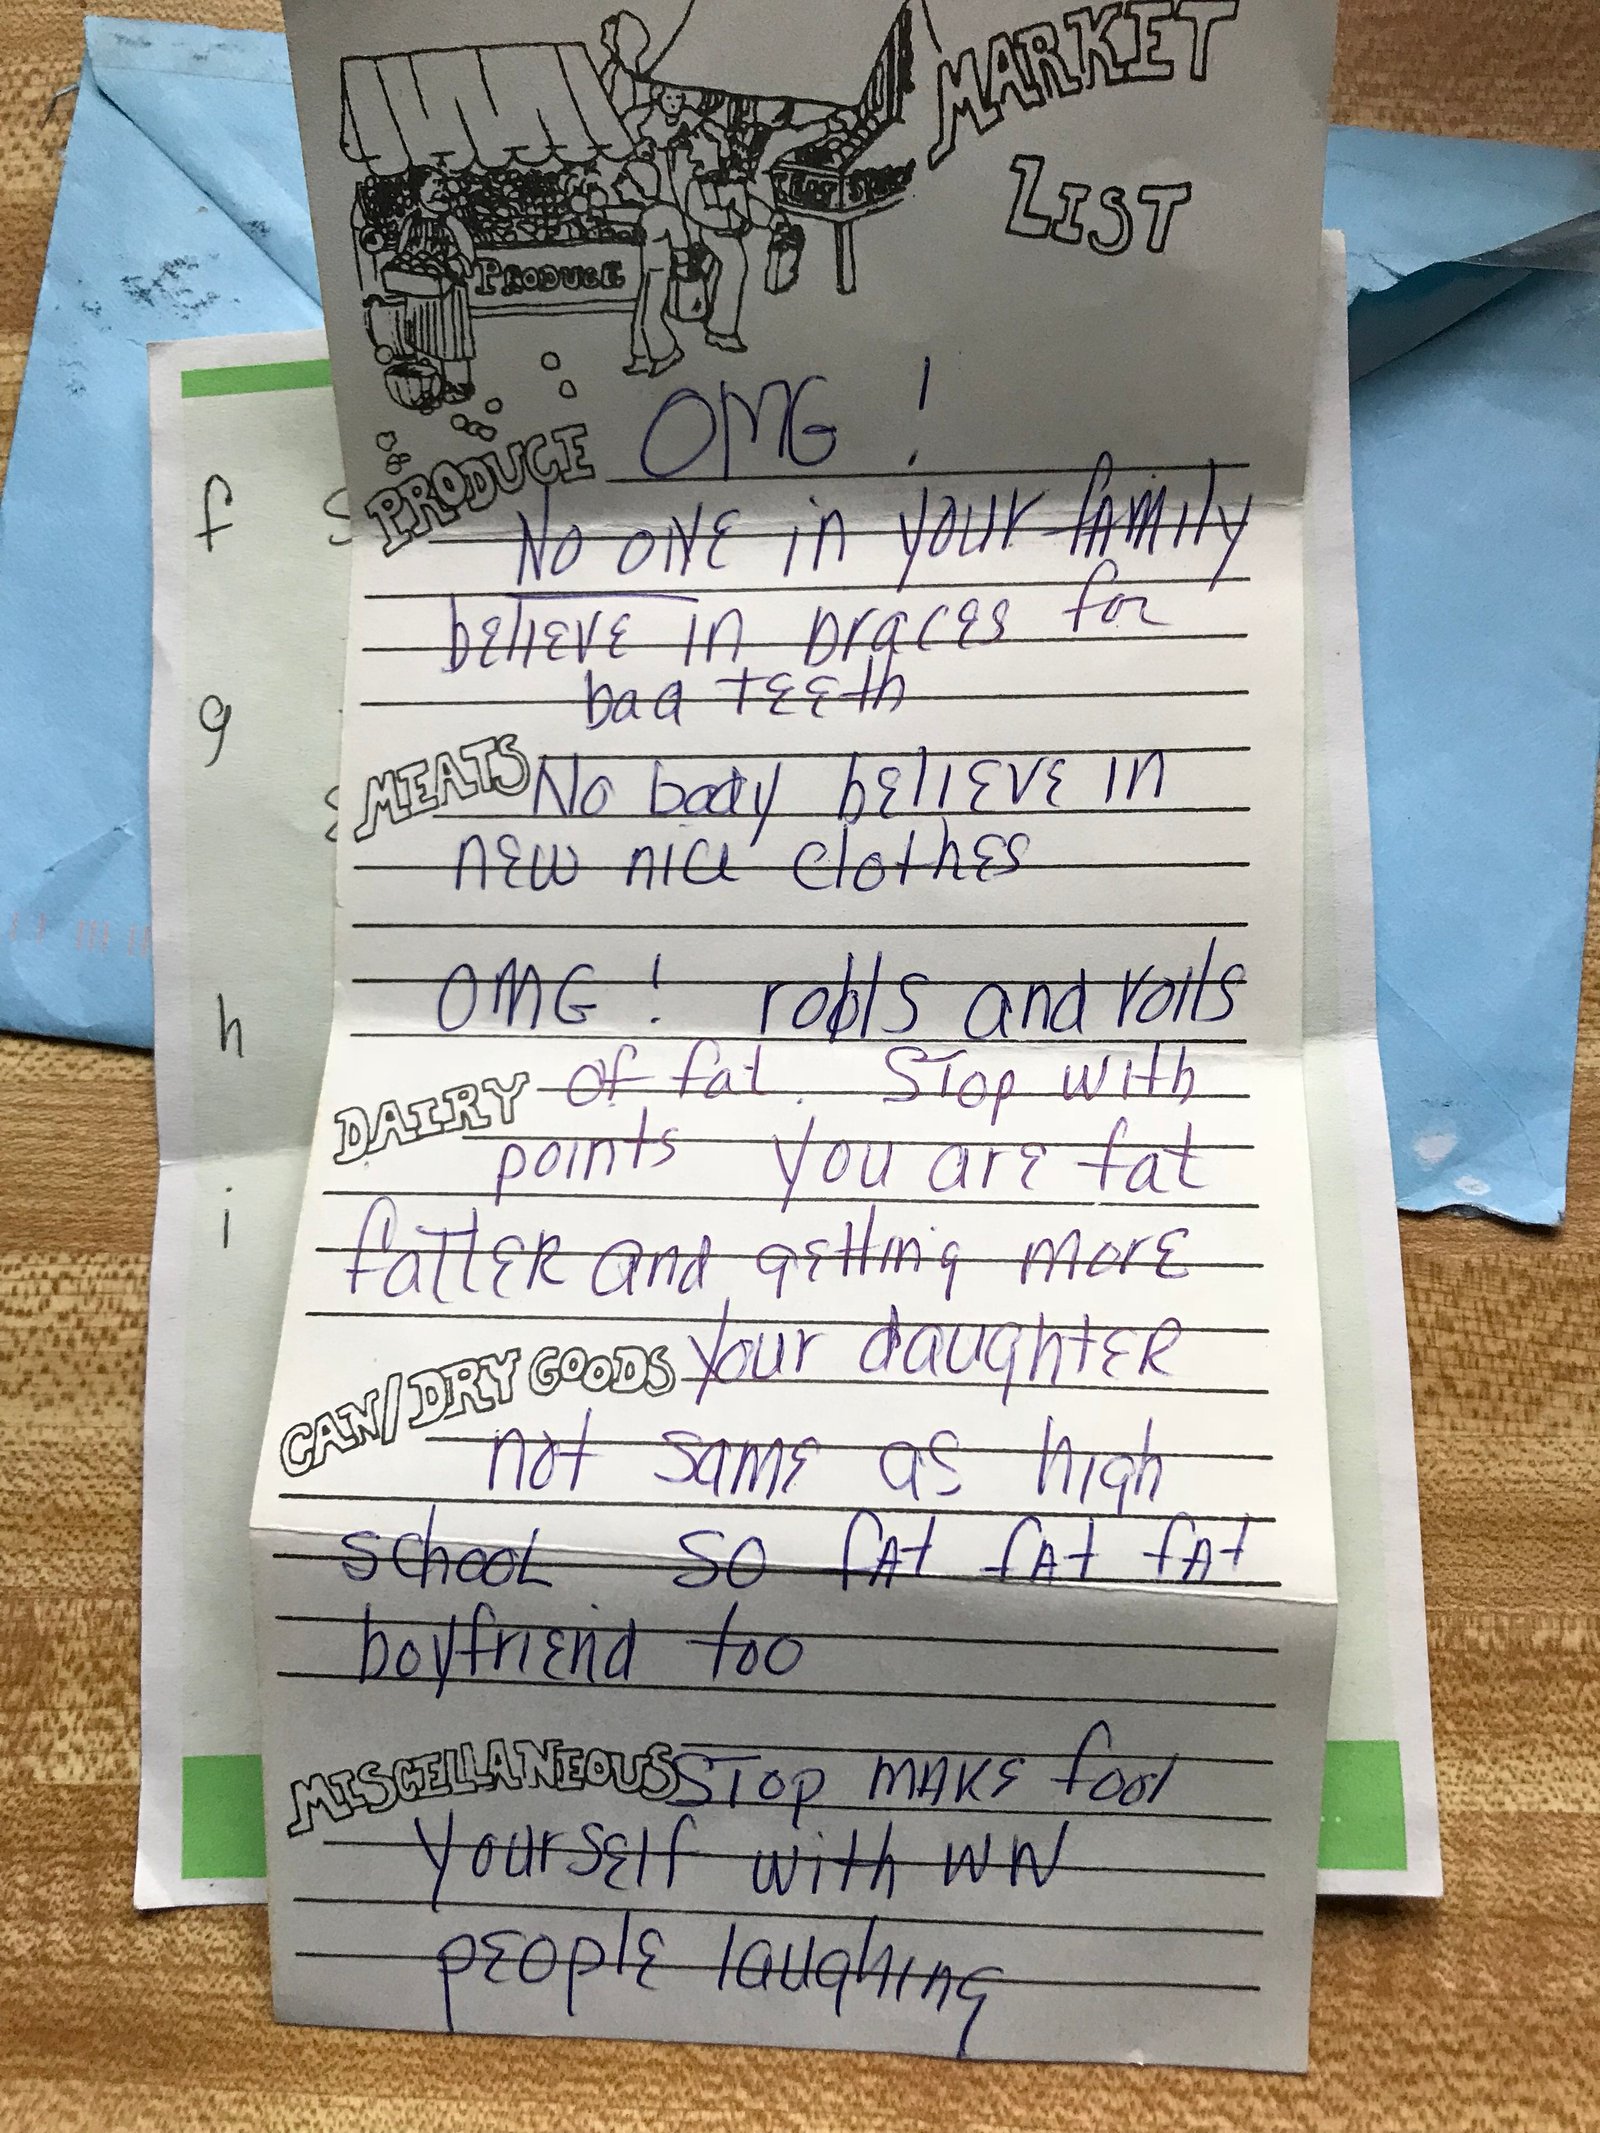 MARKET
LIST
PRODUCE
OMG !
PRODUCE
No ONE in your family
believe in braces for
bad teeth
MEATS
No body believe in
new nice clothes
OMG ! rolls and rolls
of fat. Stop with
DAIRY
points you are fat
fatter and getting more
your daughter
CAN/DRY GOODS
not same as high
school so fat fat fat
boyfriend too
MISCELLANEOUS
Stop make fool
yourself with WW
people laughing
f
g
h
i